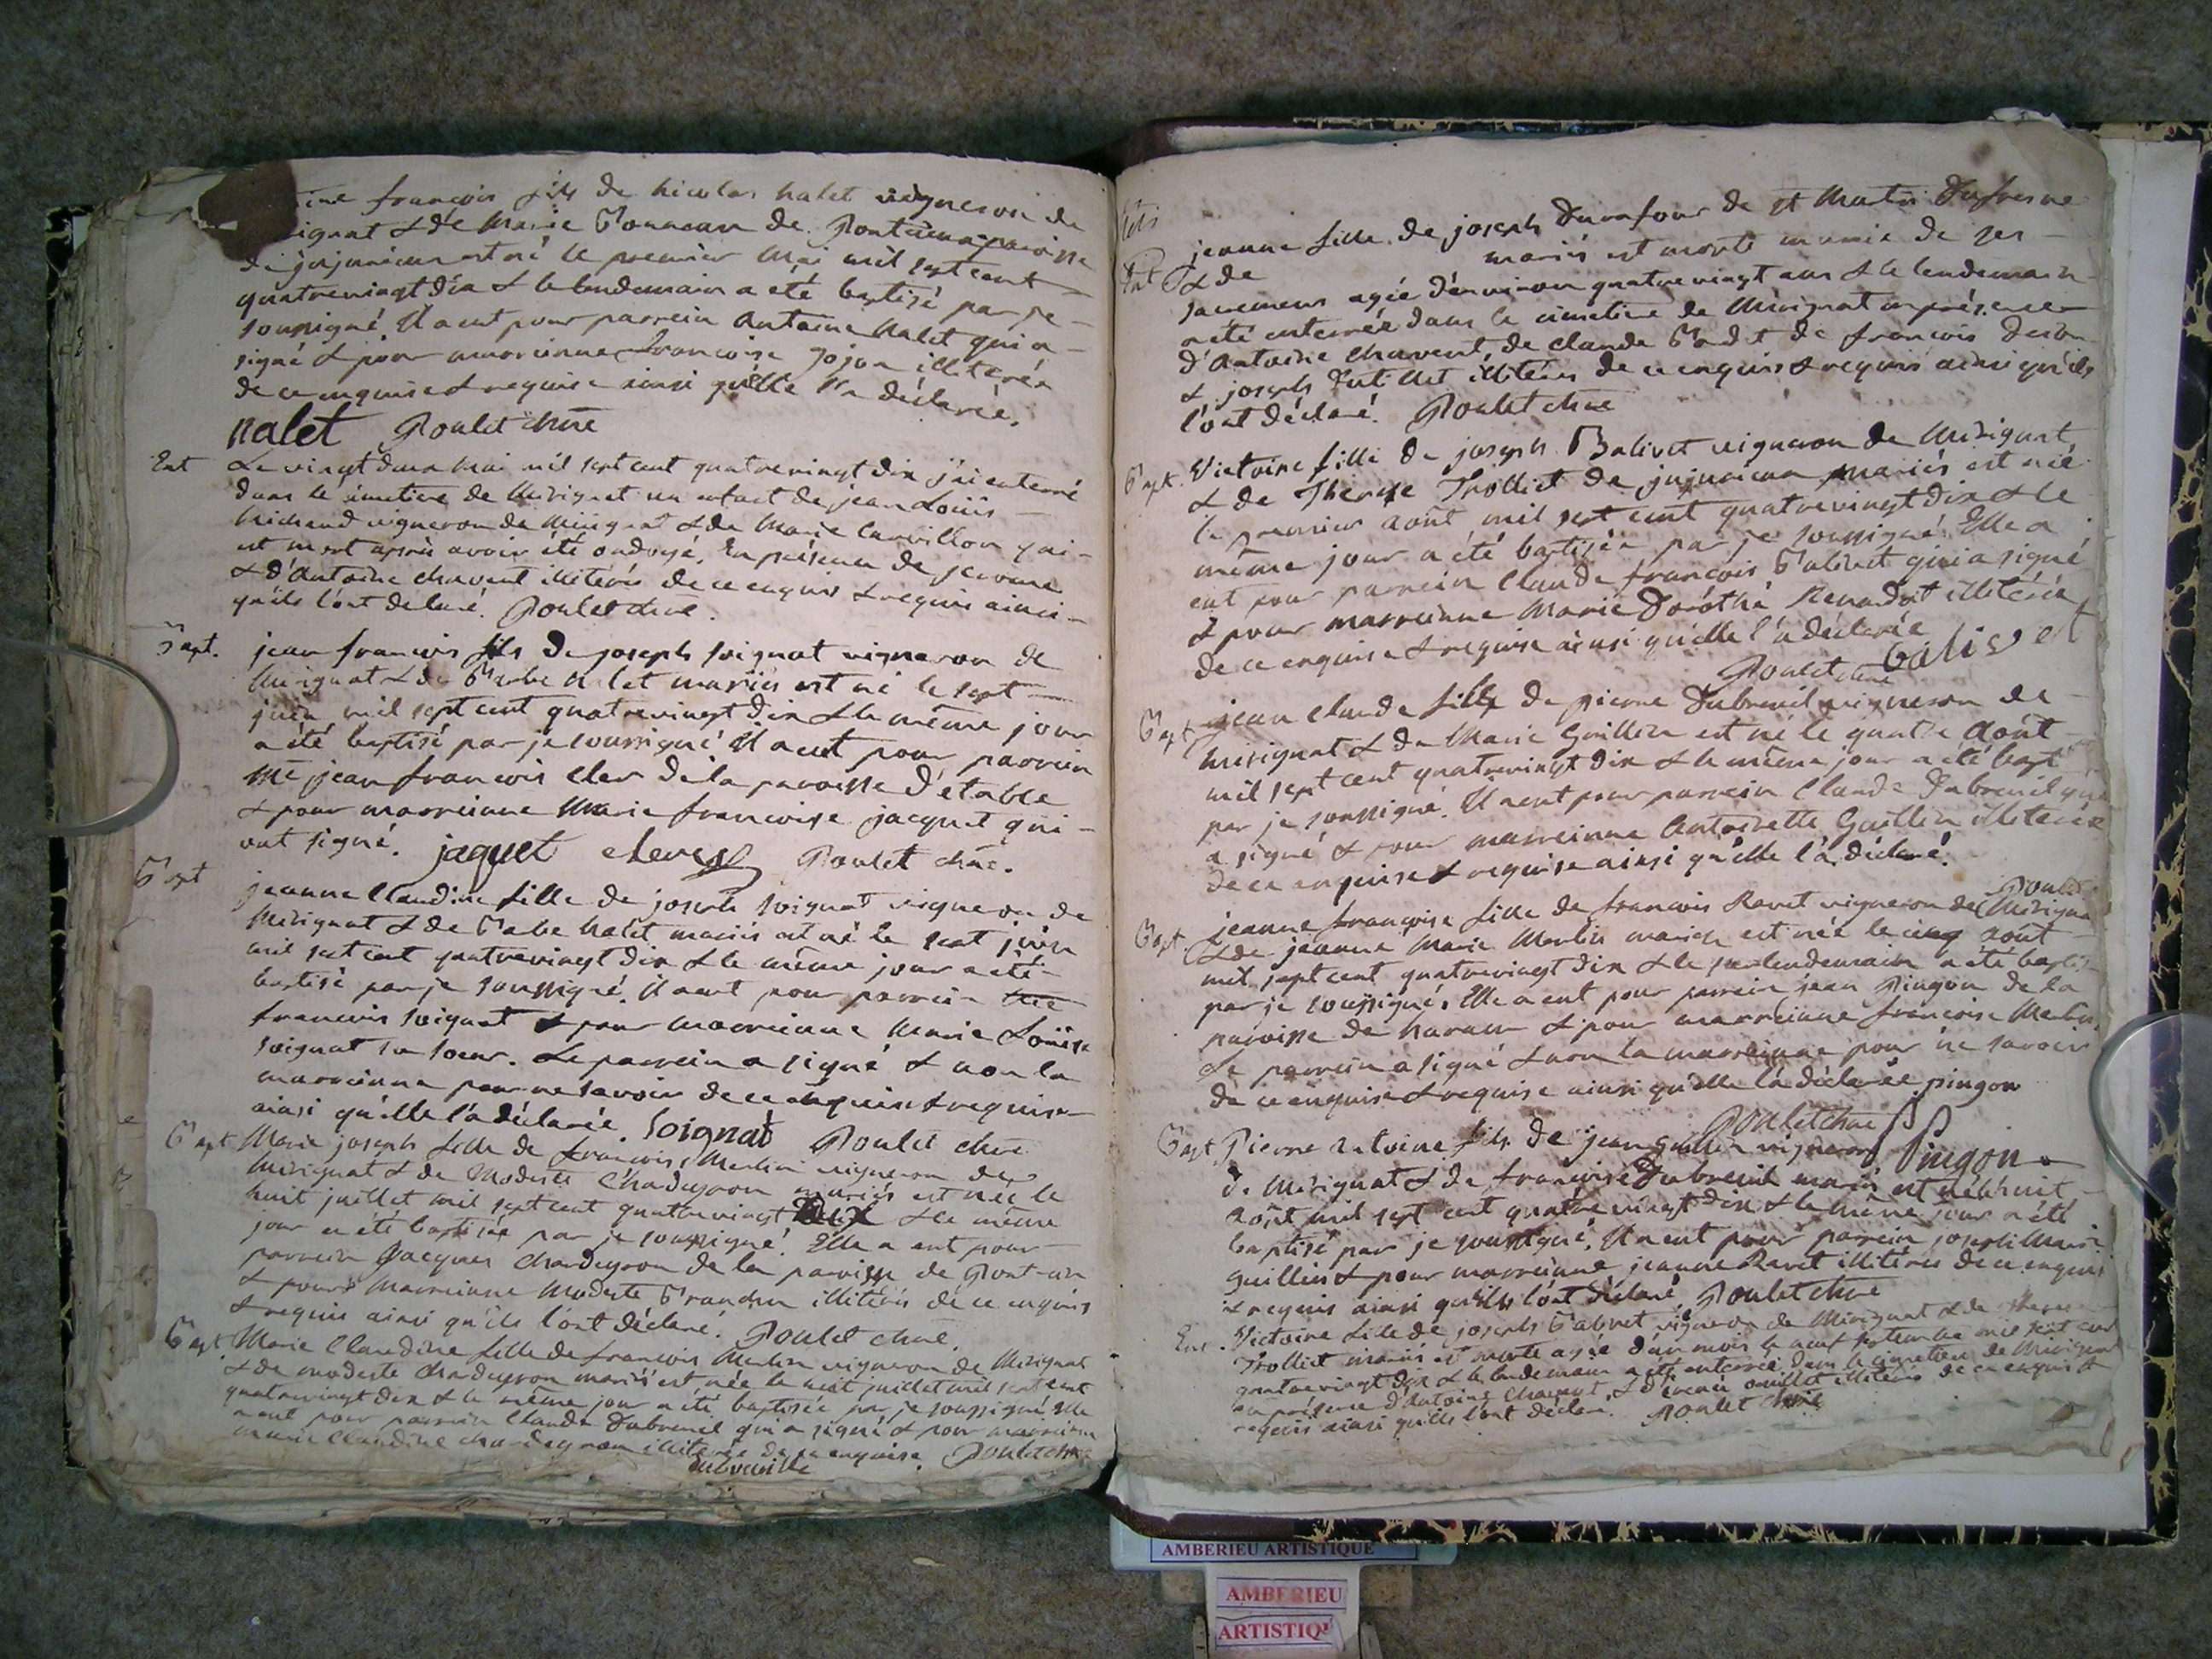 françois fils de nicolas nalet vigneron de
& de Marie de paroisse
de jujurieux est né le premier Mai mil sept cent
quatrevingt dix & le lendemain a été baptisé par je
soussigné. Il a eut pour parrein Antoine Nalet qui a
signé & pour marreinne françoise Jojon illiterée
de ce enquise & requise ainsi qu'elle l'a déclarée.
nalet Poulet
Ent Le vingt deux Mai mil sept cent quatrevingt dix j'ai enterré
dans le cimetiere de Mérignat un enfant de jean Loüis
Michaud vigneron de Mérignat & de Marie qui
est mort après avoir été ondoyé. En présence de
& d'Antoine Chavent illiterés de ce enquis & requis ainsi
qu'ils l'ont declaré. Poulet
Bapt. jean francois fils de joseph soignat vigneron de
Merignat & de Barbe Nalet mariés est né le sept
juin mil sept cent quatrevingt dix & le même jour
a été baptisé par je soussigné Il a eut pour parrein
Me jean francois de la paroisse d'étable
& pour marreinne Marie francoise jacquet qui
ont signé. jaquet Poulet
Bapt jeanne Claudine fille de joseph soignat vigneron de
Mérignat & de Barbe Nalet mariés est né le sept juin
mil sept cent quatrevingt dix & le même jour a été
baptisé par je soussigné. Il a eut pour parrein
francois soignat & pour marreinne Marie Loüise
soignat sa soeur. Le parrein a signé & non la
marreinne pour ne savoir de ce enquise & requise
ainsi qu'elle l'a déclarée. Soignat Poulet
Bapt Marie joseph fille de francois Merlin vigneron de
Mérignat & de Modeste Chardeyron mariés est née le
huit juillet mil sept cent quatrevingt dix & le même
jour a été baptisée par je soussigné. Elle a eut pour
parrein Jacques Chardeyron de la paroisse de Pont-ain
& pour Marreinne Modeste illiterés de ce enquis
& requis ainsi qu'ils l'ont déclaré. Poulet
Bapt Marie Claudine fille de francois Merlin vigneron de Mérignat
& de modeste Chardeyron mariés est née le huit juillet mil sept cent
quatrevingt dix & le même jour a été baptisée par je soussigné. Elle
a eut pour parrein Claude Dubreuil qui a signé & pour marreinne
marie Claudine chardeyron illiterée de ce enquise. Poulet
jeanne fille de joseph Dunafour de st Martin Dufresne
Ent & de mariés est morte munie de ses
sacremens agée d'environ quatrevingt ans & le lendemain
a été enterrée dans le cimetiere de Mérignat en présence
d'Antoine Chavent, de claude de francois
& joseph illitérés de ce enquis & requis ainsi qu'ils
l'ont déclaré. Poulet
Bapt. Victoire fille de joseph Balivet vigneron de Mérignat
& de Therese Trolliet de jujurieux mariés est née
le premier août mil sept cent quatrevingt dix & le
même jour a été baptisée par je soussigné. Elle a
eut pour parrein Claude francois Balivet qui a signé
& pour marreinne Marie Dorothé illitérée
de ce enquise & requise ainsi qu'elle l'a déclarée
Poulet balivet
Bapt jean claude fils de pierre Dubreuil vigneron de
Mérignat & de Marie Guillin est né le quatre Août
mil sept cent quatrevingt dix & le même jour a été bapt
par je soussigné. Il a eut pour parrein Claude Dubreuil qui
a signé & pour marreinne Antoinette Guillin illiterée
de ce enquise & requise ainsi qu'elle l'a déclaré.
Poulet
Bapt. jeanne françoise fille de francois Ravet vigneron de Mérignat
& de jeanne Marie Merlin mariés est née le cinq août
mil sept cent quatrevingt dix & le lendemain a été baptisée
par je soussigné. Elle a eut pour parrein jean Pingon de la
paroisse de & pour marreinne francoise Merlin.
Le parrein a signé & non la marreinne pour ne savoir
de ce enquise & requise ainsi qu'elle l'a déclarée pingon
Poulet
Pingon
Bapt Pierre antoine fils de jean Guillin vigneron
de Mérignat & de françoise Dubreuil mariés est né le huit
août mil sept cent quatre vingt dix & le même jour a été
baptisé par je soussigné. Il a eut pour parrein joseph Marie
guillin & pour marreinne jeanne Ravet illitérés de ce enquis
& requis ainsi qu'ils l'ont déclaré Poulet
Ent. Victoire fille de joseph Balivet vigneron de Mérignat & de therese
Trolliet mariés est morte agée d'un mois le neuf septembre mil sept cent
quatrevingt dix & le lendemain a été enterrée dans le cimetiere de Mérignat
en présence d'Antoine Chavent, & illiterés de ce enquis &
requis ainsi qu'ils l'ont déclaré. Poulet
AMBERIEU ARTISTIQUE
AMBERIEU
ARTISTIQ